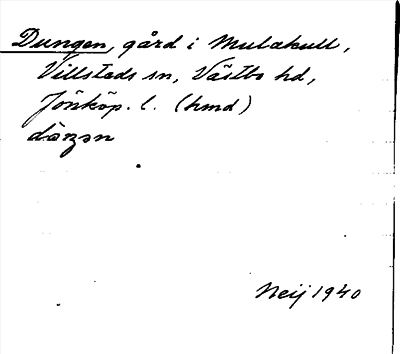 Dungen, gård i Mulakull,
Villstads sn, Västbo hd,
Jönköp. l. (hmd)
Neij 1940